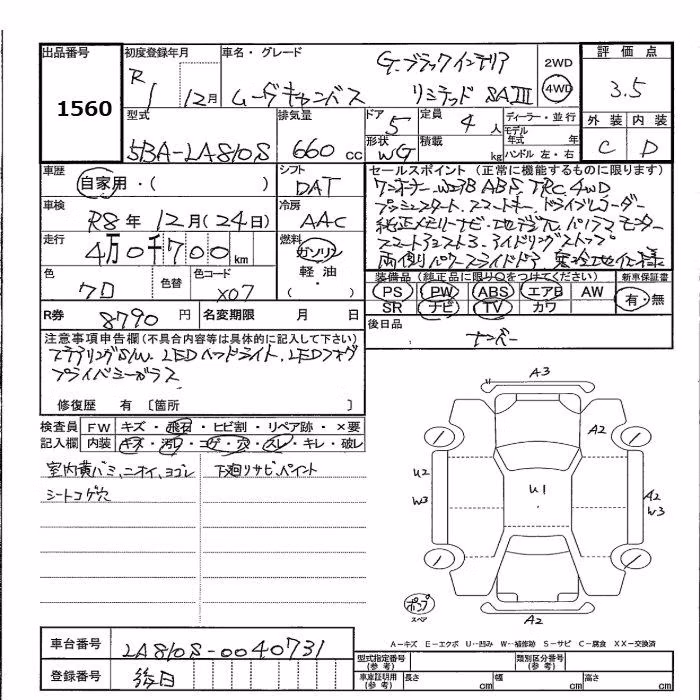 出品番号
1560
初度登録年月
R 1 12月
車名・グレード
G.ブラックインテリア
ムーヴキャンバス リミテッド SAⅢ
2WD
4WD
評価点
3.5
外装 内装
C D
型式
5BA-LA810S
排気量
660 cc
ドア
5
形状
WG
定員
4 人
積載
kg
ディーラー・並行
モデル年式 年
ハンドル 左・右
車歴
自家用・( )
シフト
DAT
車検
R8年 12月(24日)
冷房
AAC
走行
4万0千700km
燃料
ガソリン
軽油
・( )
色
クロ
色替
色コード
X07
R券
8790 円
名変期限 月 日
セールスポイント(正常に機能するものに限ります)
ワンオーナー.WエアB ABS TRC 4WD
プッシュスタート.スマートキー.ドライブレコーダー
純正メモリーナビ.地デジTV.パノラマモニター
スマートアシスト3.アイドリングストップ
両側パワースライドドア 寒冷地仕様
装備品(純正品に限り○をつけてください)
PS PW ABS エアB AW
SR ナビ TV カワ
新車保証書
有・無
後日品
ナンバー
注意事項申告欄(不具合内容等は具体的に記入して下さい)
ステアリングS/W.LEDヘッドライト.LEDフォグ
プライバシーガラス
修復歴 有 〔箇所 〕
検査員記入欄
FW キズ・飛石・ヒビ割・リペア跡・×要
内装 キズ・汚れ・コゲ・穴・スレ・キレ・破レ
室内黄バミ,ニオイ,ヨゴレ
シートコゲ穴
下廻りサビ.ペイント
A3
A2
U2
W3
U1
A2
W3
A2
ポンプ
スペア
車台番号
LA810S-0040731
登録番号
後日
A-キズ E-エクボ U-凹み W-補修跡 S-サビ C-腐食 XX-交換済
型式指定番号(参考)
類別区分番号(参考)
車庫証明用(参考)
長さ cm
幅 cm
高さ cm